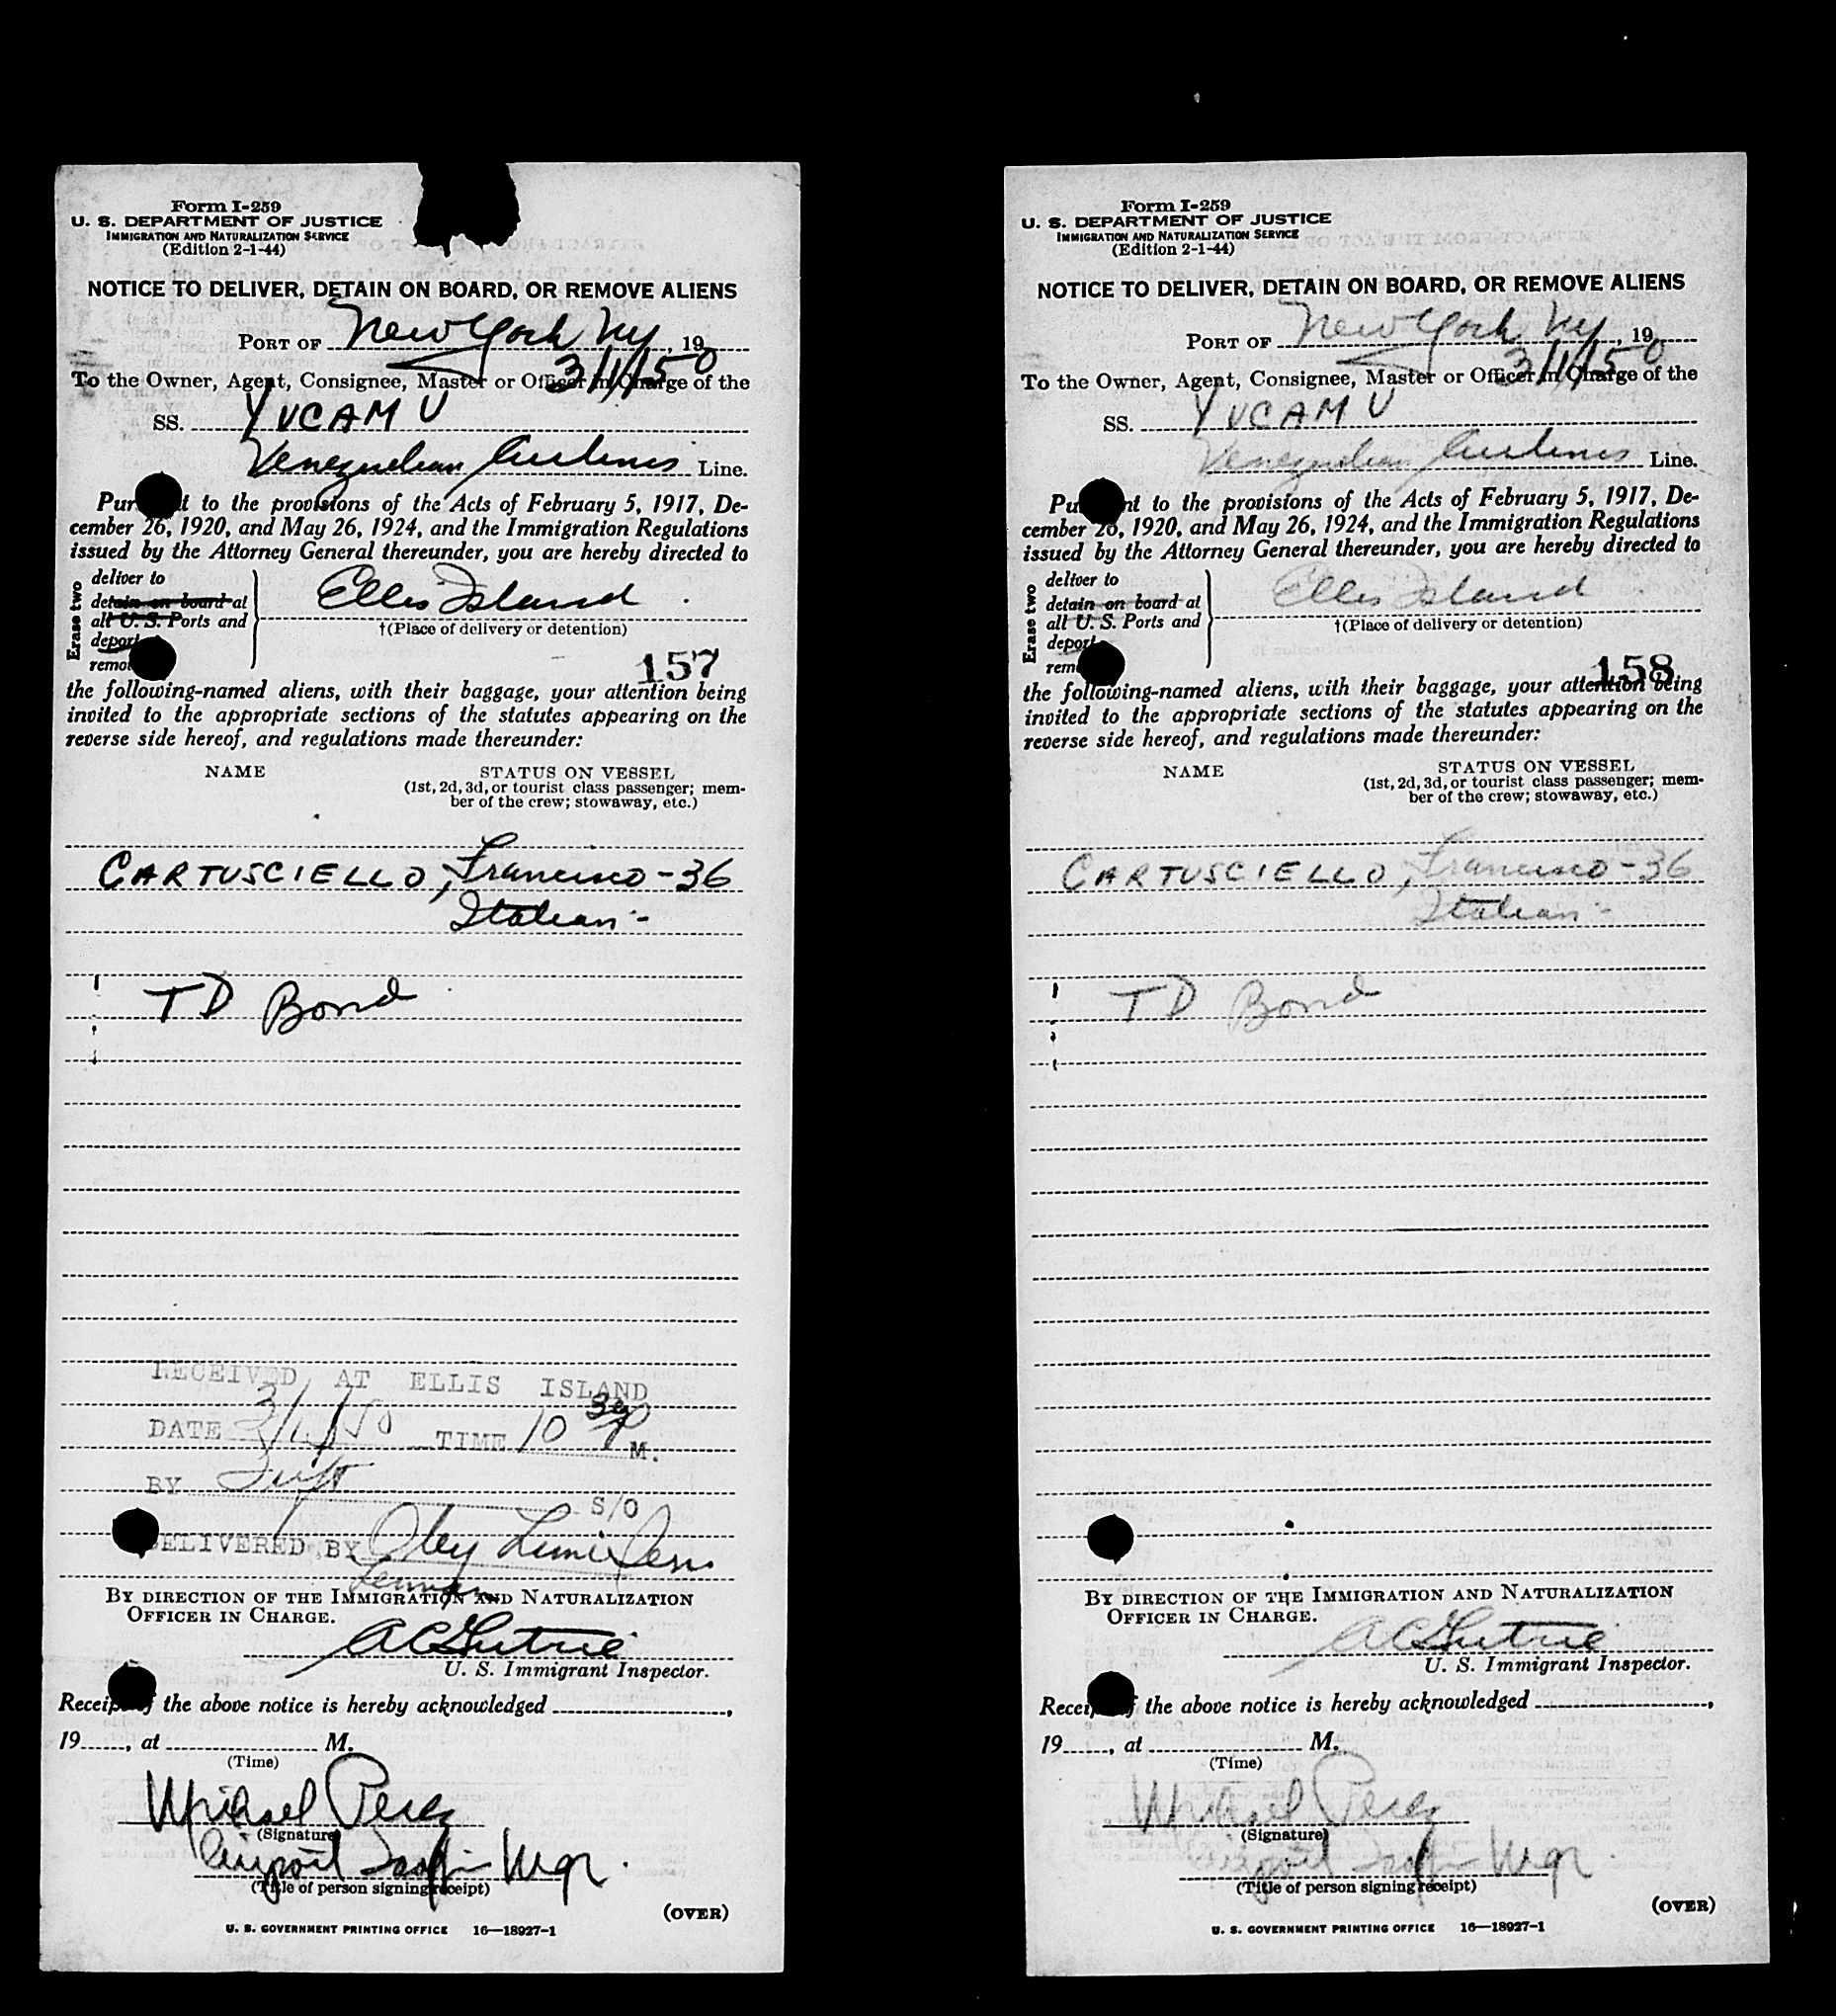 Form I-259
U. S. DEPARTMENT OF JUSTICE
IMMIGRATION AND NATURALIZATION SERVICE
(Edition 2-1-44)
NOTICE TO DELIVER, DETAIN ON BOARD, OR REMOVE ALIENS
PORT OF New York NY, 19
3/1/50
To the Owner, Agent, Consignee, Master or Officer in Charge of the
SS. YVCAMU
Venezuelan Airlines Line.
Pur t to the provisions of the Acts of February 5, 1917, De-
cember 26, 1920, and May 26, 1924, and the Immigration Regulations
issued by the Attorney General thereunder, you are hereby directed to
Erase two
deliver to
detain on board at
all U. S. Ports and
deport
remo
Ellis Island
†(Place of delivery or detention)
157
the following-named aliens, with their baggage, your attention being
invited to the appropriate sections of the statutes appearing on the
reverse side hereof, and regulations made thereunder:
NAME STATUS ON VESSEL
(1st, 2d, 3d, or tourist class passenger; mem-
ber of the crew; stowaway, etc.)
CARTUSCIELLO, Francisco - 36
Italian -
TD Bond
RECEIVED AT ELLIS ISLAND
DATE 3/1/50 TIME 10 30 P M.
BY S/O
DELIVERED BY
BY DIRECTION OF THE IMMIGRATION AND NATURALIZATION
OFFICER IN CHARGE.
U. S. Immigrant Inspector.
Receipt of the above notice is hereby acknowledged ,
19 , at M.
(Time)
Michael Perez
(Signature)
Airport Traffic Mgr.
(Title of person signing receipt)
(OVER)
U. S. GOVERNMENT PRINTING OFFICE 16—18927-1
Form I-259
U. S. DEPARTMENT OF JUSTICE
IMMIGRATION AND NATURALIZATION SERVICE
(Edition 2-1-44)
NOTICE TO DELIVER, DETAIN ON BOARD, OR REMOVE ALIENS
PORT OF New York NY, 19
3/1/50
To the Owner, Agent, Consignee, Master or Officer in Charge of the
SS. YVCAMU
Venezuelan Airlines Line.
Pu nt to the provisions of the Acts of February 5, 1917, De-
cember 26, 1920, and May 26, 1924, and the Immigration Regulations
issued by the Attorney General thereunder, you are hereby directed to
Erase two
deliver to
detain on board at
all U. S. Ports and
deport
rem
Ellis Island
†(Place of delivery or detention)
158
the following-named aliens, with their baggage, your attention being
invited to the appropriate sections of the statutes appearing on the
reverse side hereof, and regulations made thereunder:
NAME STATUS ON VESSEL
(1st, 2d, 3d, or tourist class passenger; mem-
ber of the crew; stowaway, etc.)
CARTUSCIELLO, Francisco - 36
Italian -
TD Bond
BY DIRECTION OF THE IMMIGRATION AND NATURALIZATION
OFFICER IN CHARGE.
U. S. Immigrant Inspector.
Receipt of the above notice is hereby acknowledged ,
19 , at M.
(Time)
Michael Perez
(Signature)
Airport Traffic Mgr.
(Title of person signing receipt)
(OVER)
U. S. GOVERNMENT PRINTING OFFICE 16—18927-1